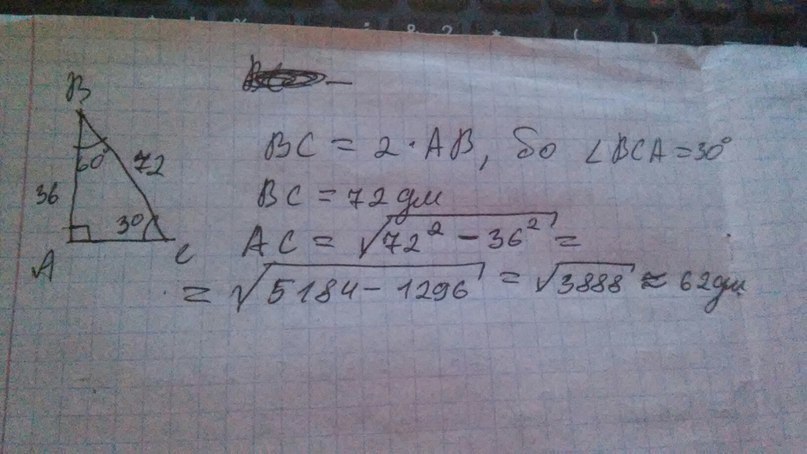 B
60°
72
36
30
A
C
BC = 2·AB, бо ∠BCA = 30°
BC = 72 дм
AC = √72² − 36² =
= √5184 − 1296 = √3888 ≈ 62 дм